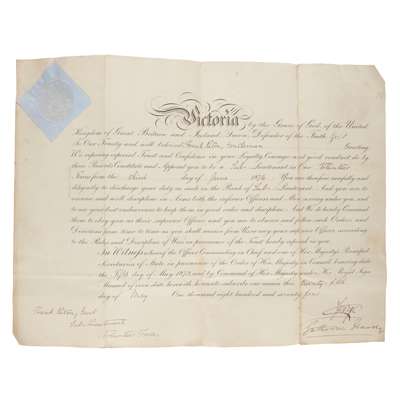 Victoria by the Grace of God, of the United
Kingdom of Great Britain and Ireland, Queen, Defender of the Faith, &c.
To Our Trusty and well beloved Frank Gentleman Greeting
We reposing especial Trust and Confidence in your Loyalty Courage and good conduct do by
these Presents Constitute and Appoint you to be a Sub Lieutenant in Our
Forces from the third day of June 1874 You are therefore carefully and
diligently to discharge your duty as such in the Rank of Sub Lieutenant and you are to
exercise and well discipline in Arms both the inferior Officers and Men serving under you and
to use your best endeavours to keep them in good order and discipline. And We do hereby Command
them to obey you as their superior Officer and you to observe and follow such Orders and
Directions from time to time as you shall receive from Us or any your superior Officer according
to the Rules and Discipline of War in pursuance of the Trust hereby reposed in you.
In Witness Officer Commanding in Chief and one of Her Majesty's Principal
Secretaries of State in pursuance of the Order of Her Majesty in Council bearing date
the Fifth day of May 1873 and by Command of Her Majesty under Her Royal Sign
Manual of even date herewith hereunto subscribe our names this twenty
day of May One thousand eight hundred and seventy four
Frank Gent
Sub Lieutenant